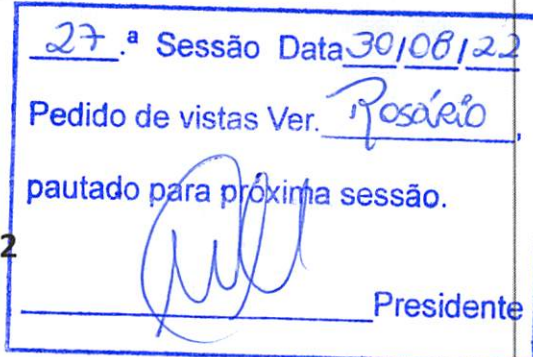 27.ª Sessão Data 30/08/22
Pedido de vistas Ver. Rosário,
pautado para próxima sessão.
2
Presidente